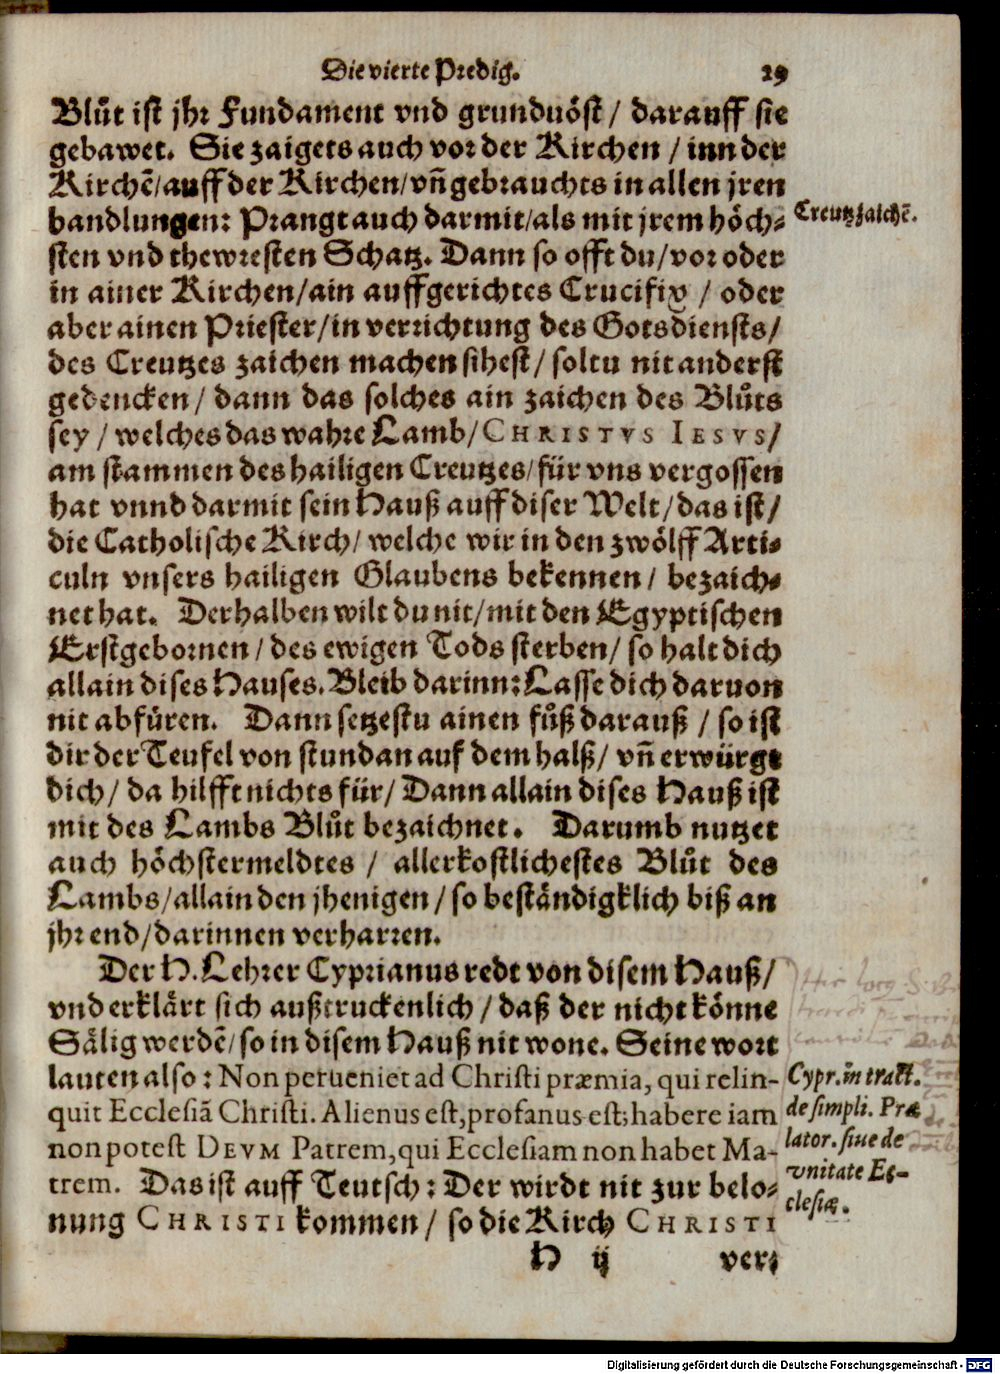 Die vierte Predig. 29
Blůt ist jhr Fundament vnd grunduöst / darauff sie
gebawet. Sie zaigets auch vor der Kirchen / inn der
Kirchẽ/auff der Kirchen/vñ gebrauchts in allen jren
handlungen: Prangt auch darmit/als mit jrem höch-
Creutzzaichẽ.
sten vnd thewresten Schatz. Dann so offt du/vor oder
in ainer Kirchen/ain auffgerichtes Crucifix / oder
aber ainen Priester/in verrichtung des Gotsdiensts/
des Creutzes zaichen machen sihest/ soltu nit anderst
gedencken/ dann das solches ain zaichen des Blůts
sey / welches das wahre Lamb/CHRISTVS IESVS/
am stammen des hailigen Creutzes/für vns vergossen
hat vnnd darmit sein Hauß auff diser Welt/das ist/
die Catholische Kirch/ welche wir in den zwölff Arti-
culn vnsers hailigen Glaubens bekennen/ bezaich-
net hat. Derhalben wilt du nit/mit den Egyptischen
Erstgebornen/des ewigen Tods sterben/ so halt dich
allain dises Hauses. Bleib darinn: Lasse dich daruon
nit abfüren. Dann setzestu ainen fůß darauß / so ist
dir der Teufel von stundan auf dem halß/ vñ erwürgt
dich/ da hilfft nichts für/ Dann allain dises Hauß ist
mit des Lambs Blůt bezaichnet. Darumb nutzet
auch höchstermeldtes / allerkostlichestes Blůt des
Lambs/allain den jhenigen/so beständigklich biß an
jhr end/darinnen verharren.
Der H. Lehrer Cyprianus redt von disem Hauß/
vnd erklärt sich außtruckenlich/ daß der nicht könne
Sälig werdẽ/so in disem Hauß nit wone. Seine wort
lauten also: Non perueniet ad Christi præmia, qui relin-
quit Ecclesiã Christi. Alienus est, profanus est, habere iam
non potest DEVM Patrem, qui Ecclesiam non habet Ma-
trem. Das ist auff Teutsch: Der wirdt nit zur belo-
nung CHRISTI kommen/ so die Kirch CHRISTI
Cypr. in tract.
de simpli. Præ
lator. siue de
vnitate Ec-
clesiæ.
H ij ver-
Digitalisierung gefördert durch die Deutsche Forschungsgemeinschaft - DFG